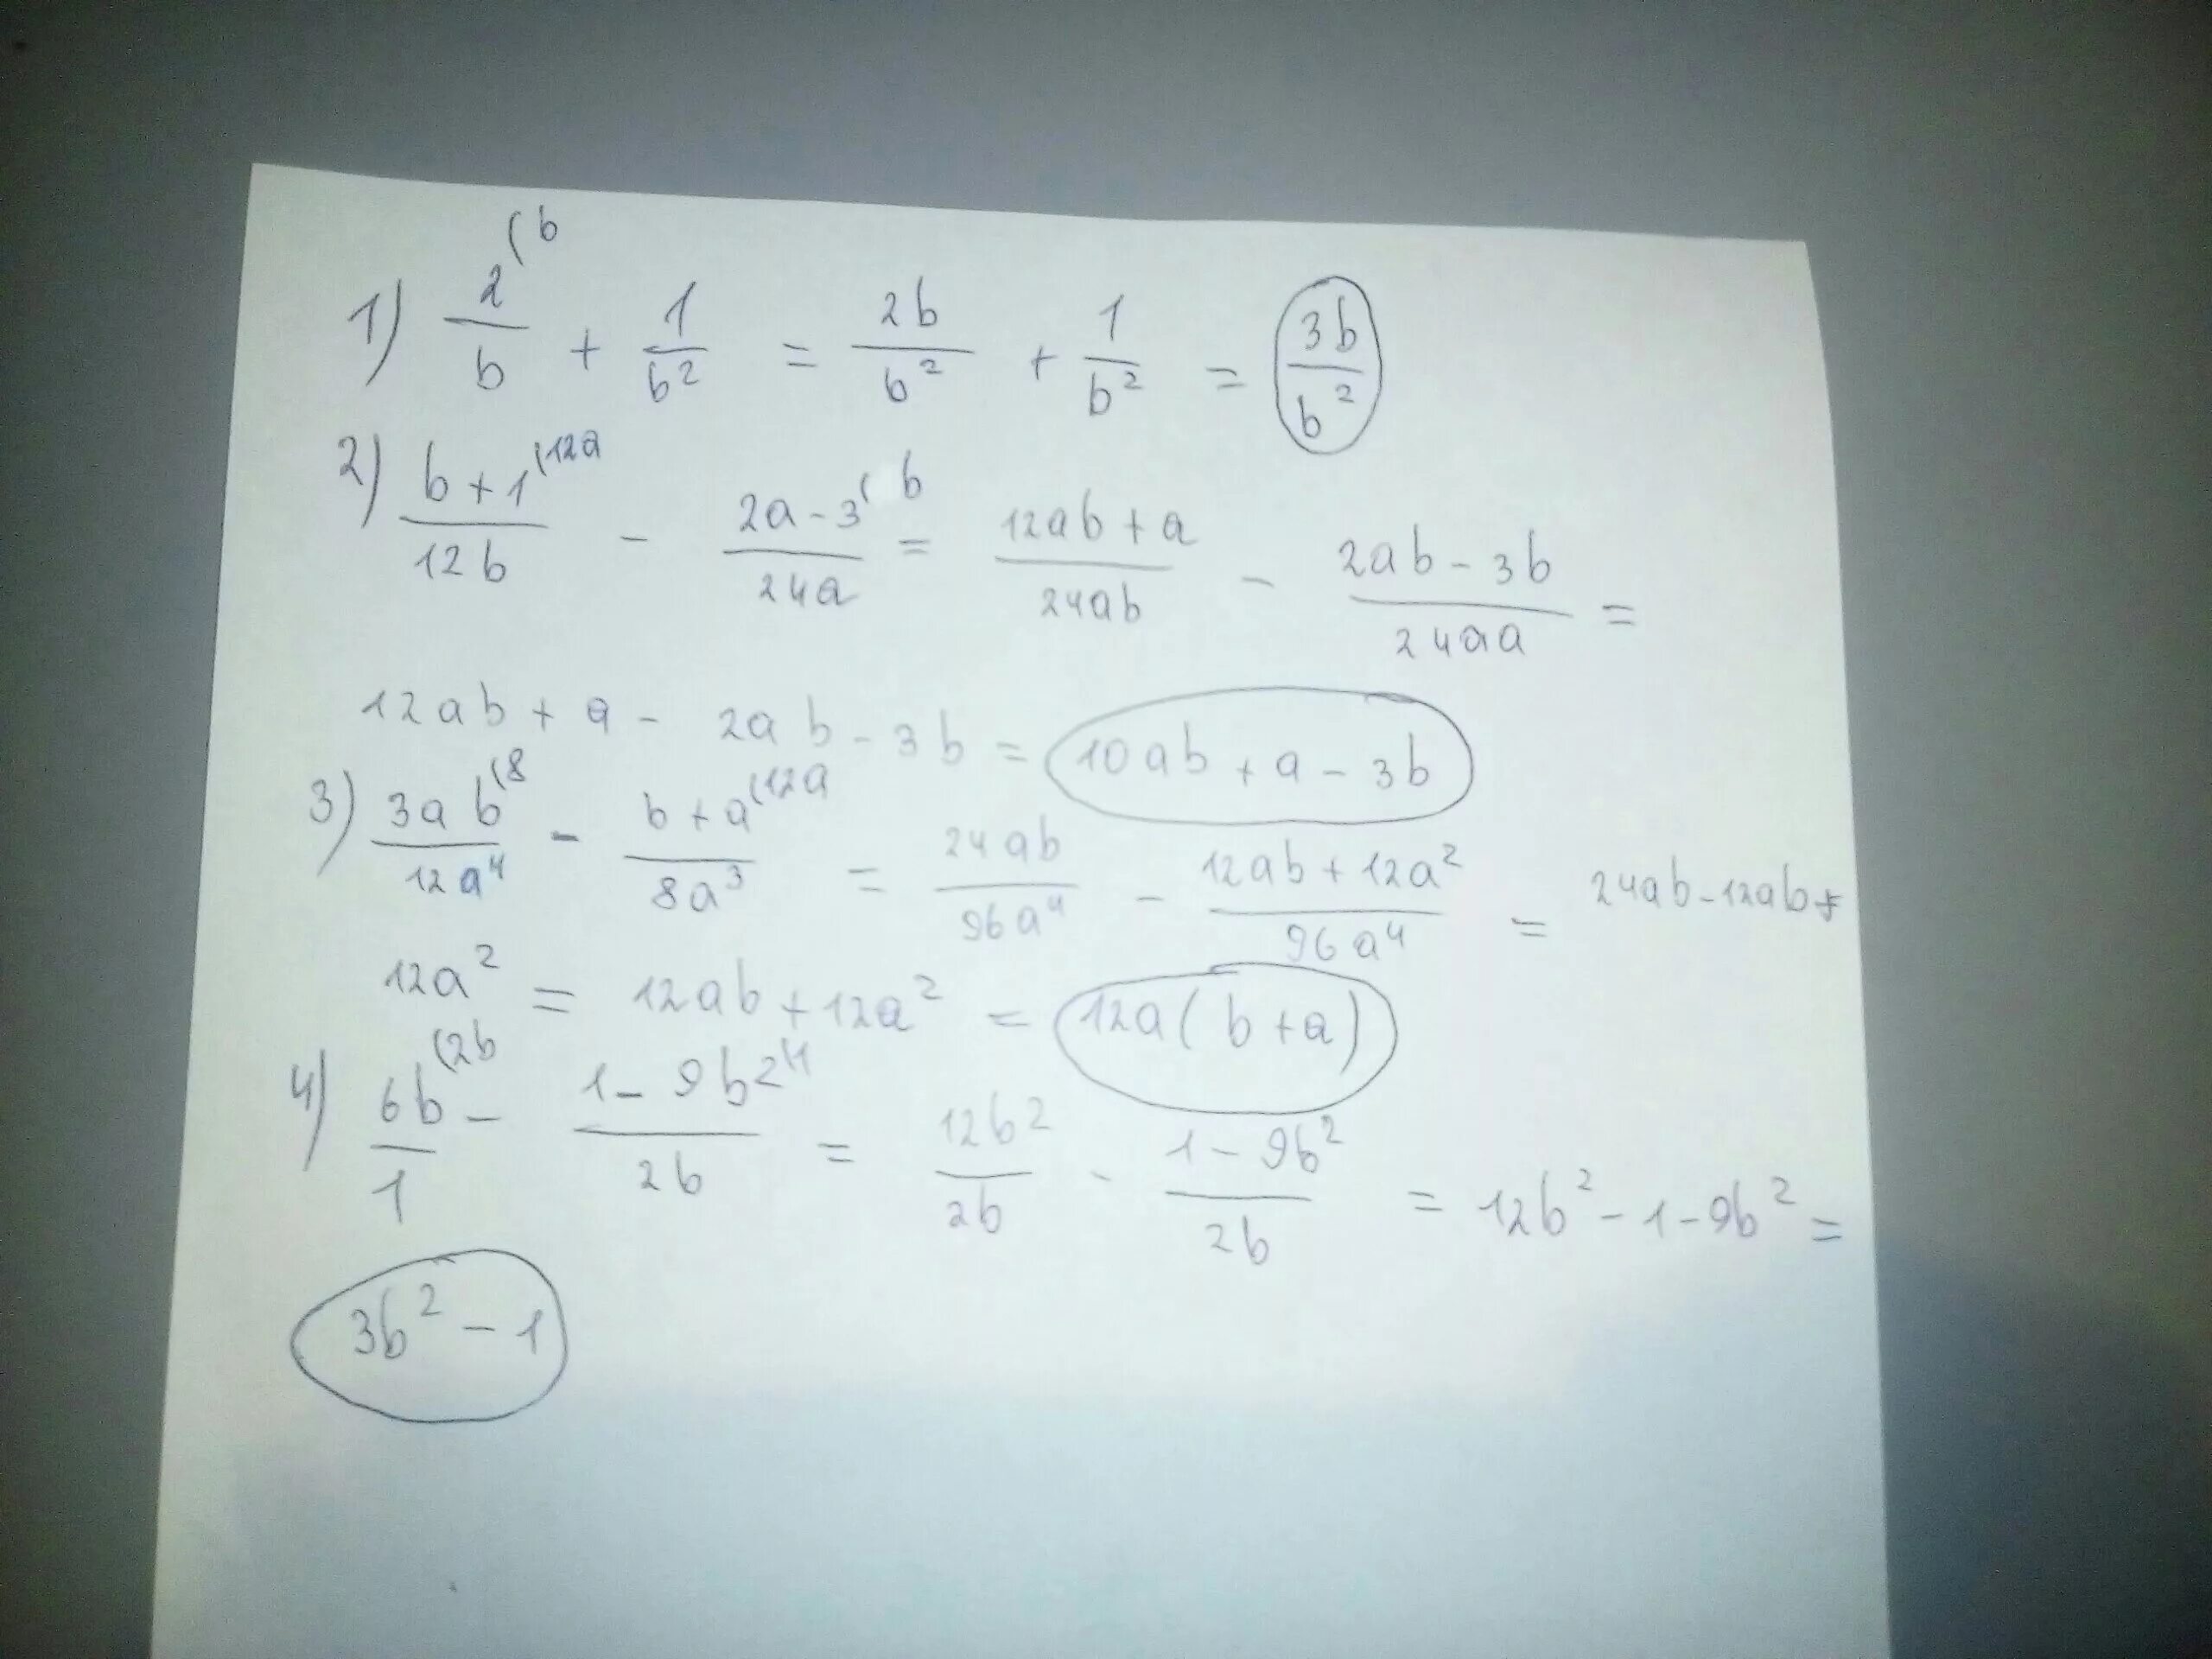 1) 2(b/b + 1/b² = 2b/b² + 1/b² = 3b/b²
2) b+1(12a/12b - 2a-3(b/24a = 12ab+a/24ab - 2ab-3b/24aa =
12ab+a- 2ab-3b = 10ab+a-3b
3) 3ab(8/12a⁴ - b+a(12a/8a³ = 24ab/96a⁴ - 12ab+12a²/96a⁴ = 24ab-12ab+
12a² = 12ab+12a² = 12a(b+a)
4) 6b(2b/1 - 1-9b²(1/2b = 12b²/2b - 1-9b²/2b = 12b²-1-9b² =
3b²-1